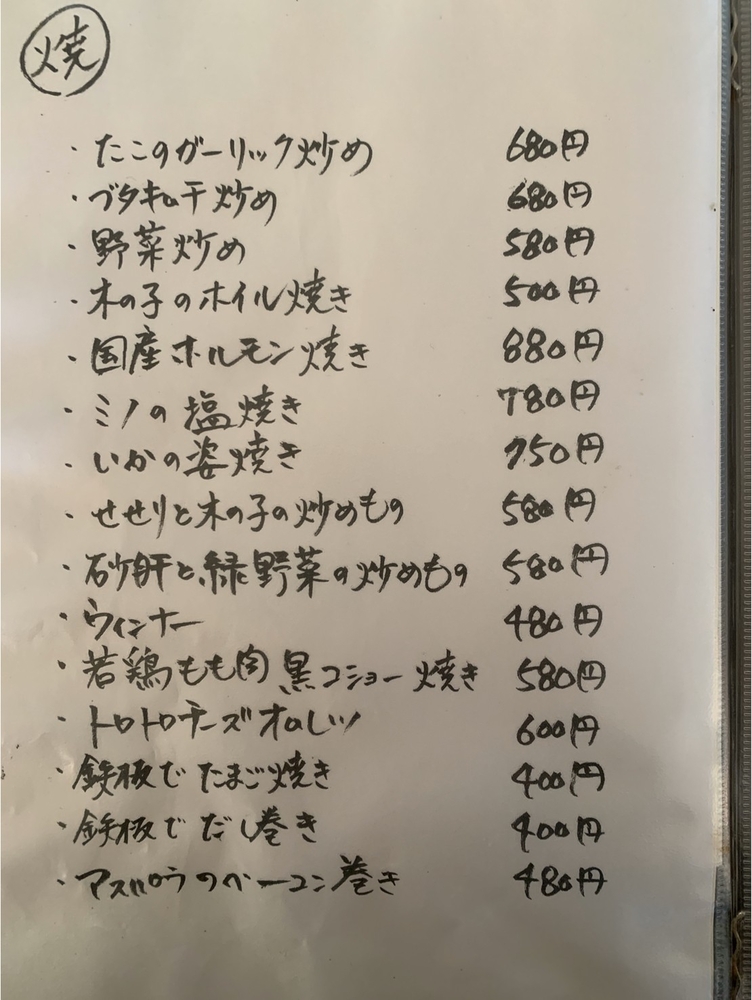 焼
・たこのガーリック炒め 680円
・ブタキムチ炒め 680円
・野菜炒め 580円
・木の子のホイル焼き 500円
・国産ホルモン焼き 880円
・ミノの塩焼き 780円
・いかの姿焼き 750円
・せせりと木の子の炒めもの 580円
・砂肝と緑野菜の炒めもの 580円
・ウィンナー 480円
・若鶏もも肉 黒コショー焼き 580円
・トロトロチーズオムレツ 600円
・鉄板でたまご焼き 400円
・鉄板でだし巻き 400円
・アスパラのベーコン巻き 480円